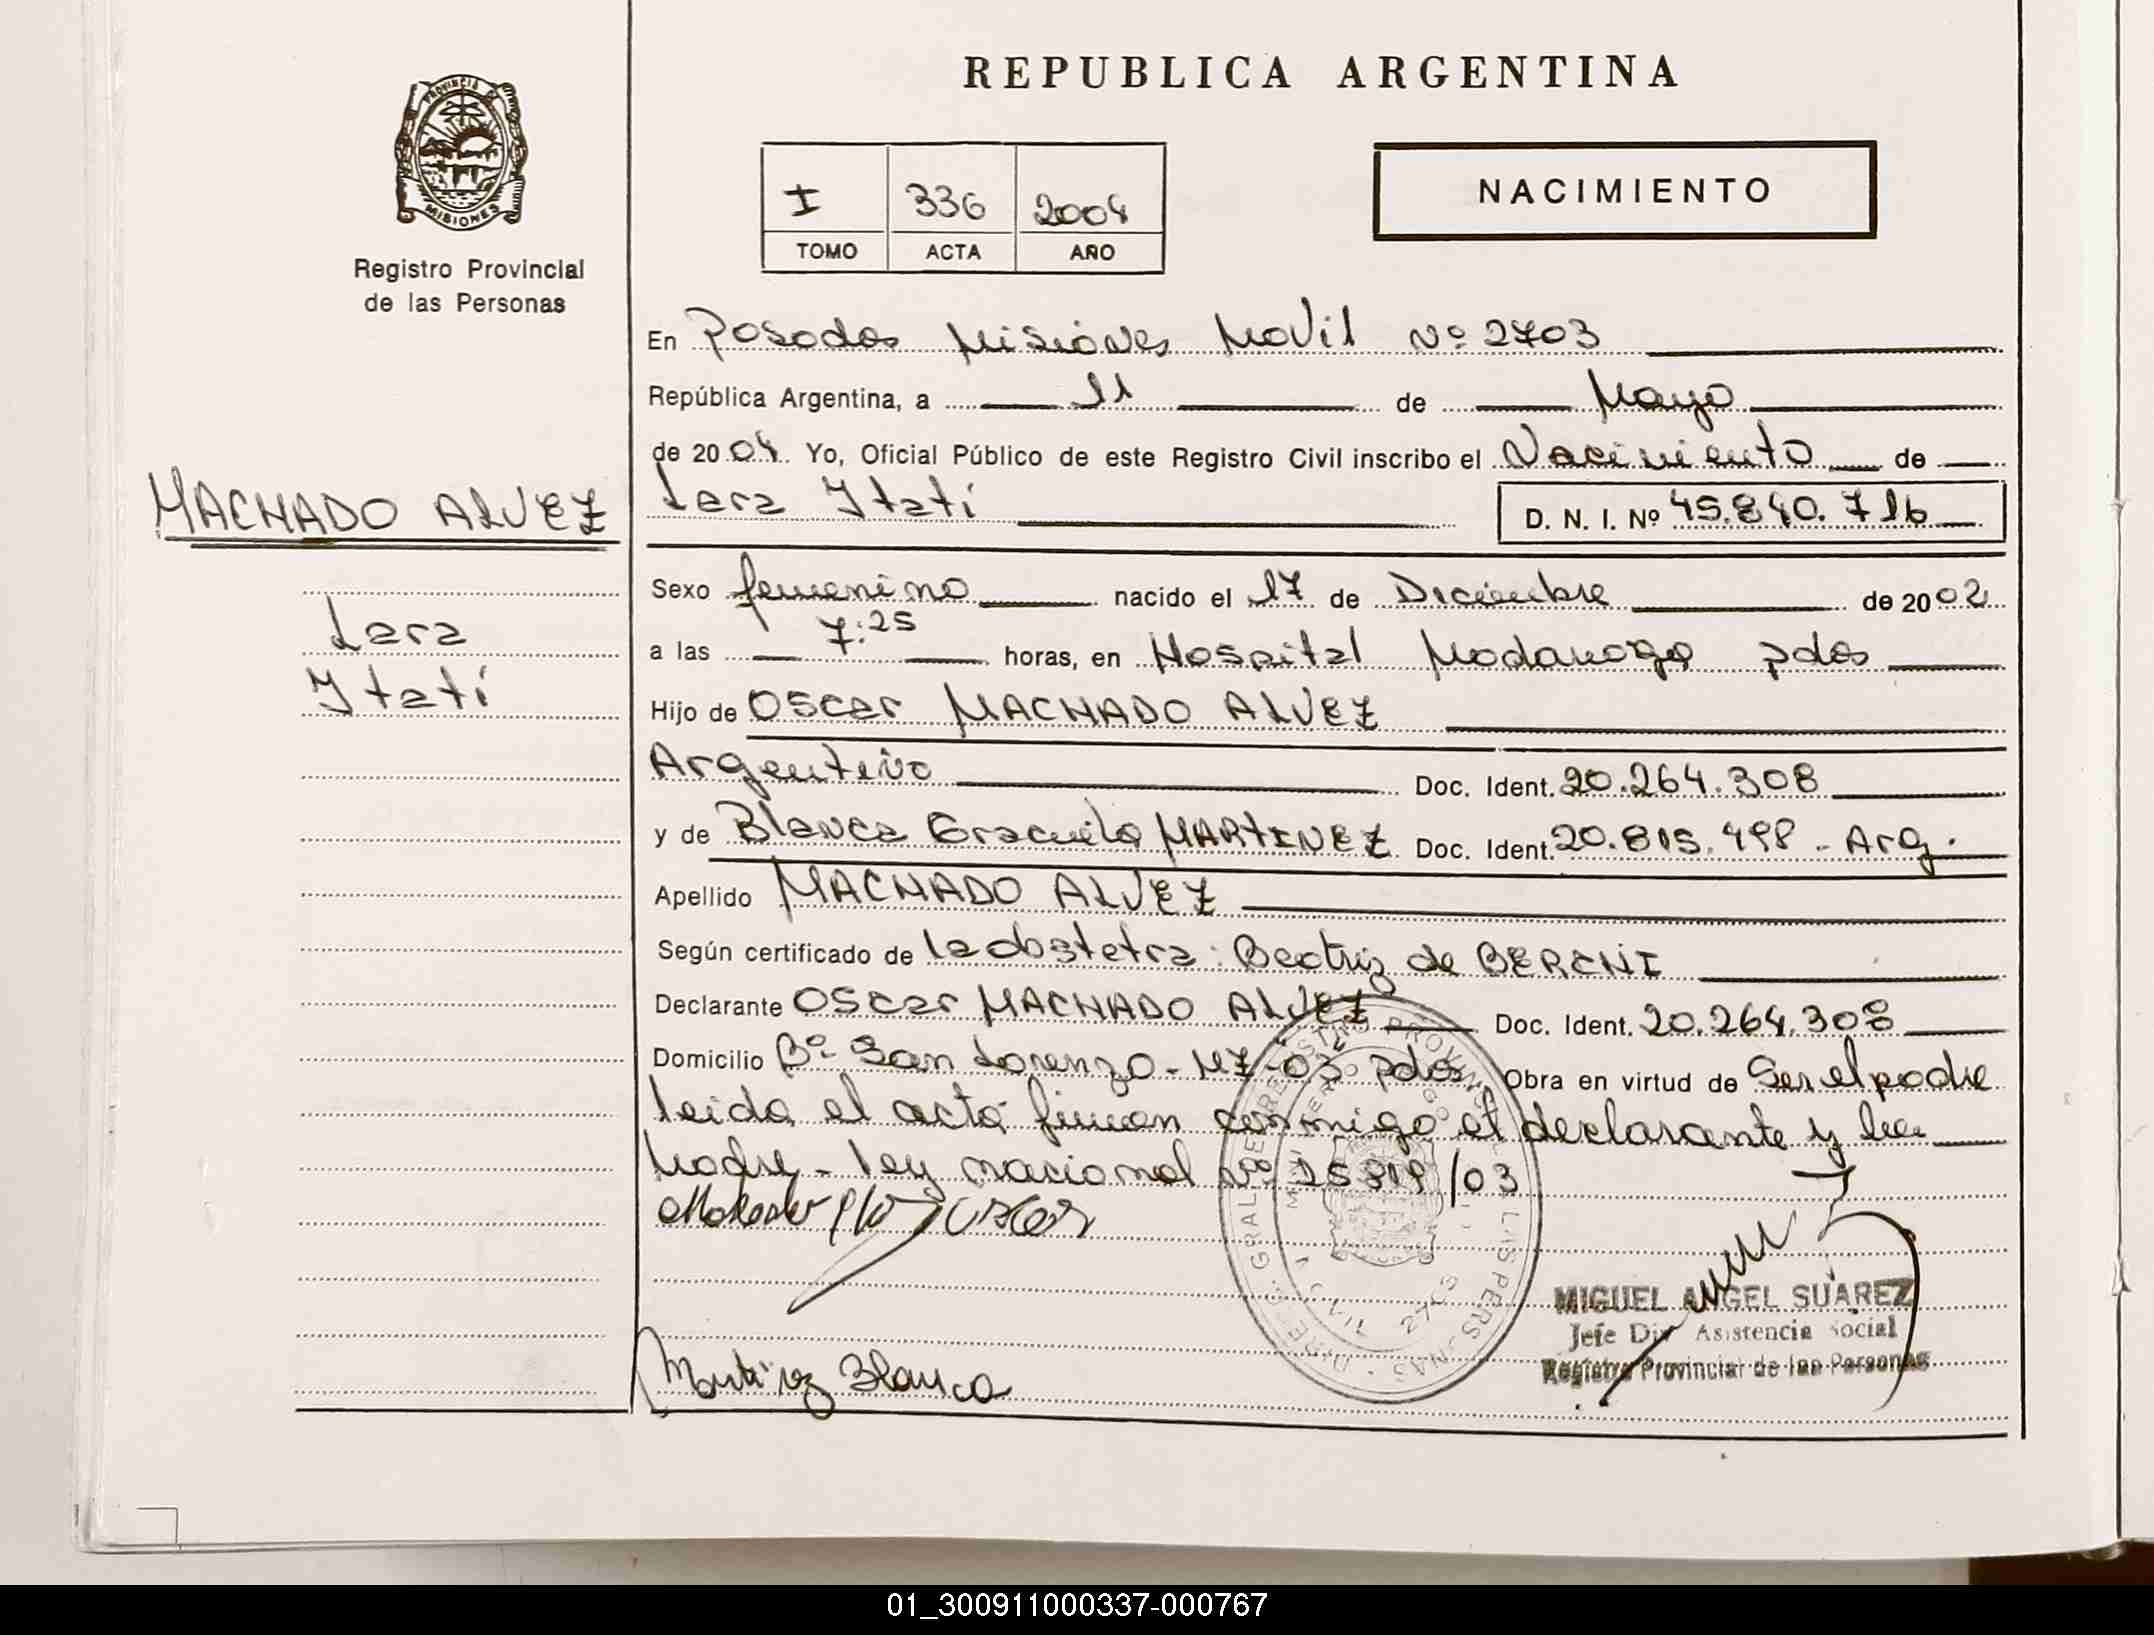 REPUBLICA ARGENTINA
PROVINCIA DE
MISIONES
Registro Provincial
de las Personas
I 336 2004
TOMO ACTA AÑO
NACIMIENTO
En Posadas Misiones Movil Nº 2703
República Argentina, a 11 de Mayo
de 2004. Yo, Oficial Público de este Registro Civil inscribo el Nacimiento de
Lara Itatí D. N. I. Nº 45.840.716
MACHADO ALVEZ
Lara
Itatí
Sexo femenino nacido el 17 de Diciembre de 2002
a las 7:25 horas, en Hospital Madariaga pdas
Hijo de Oscar MACHADO ALVEZ
Argentino Doc. Ident. 20.264.308
y de Blanca Graciela MARTINEZ Doc. Ident. 20.815.498 - Arg.
Apellido MACHADO ALVEZ
Según certificado de la obstetra: Beatriz de
Declarante Oscar MACHADO ALVEZ Doc. Ident. 20.264.308
Domicilio Bº San Lorenzo - pdas Obra en virtud de Ser el padre
leida el acta firman conmigo el declarante y la
Madre - ley nacional Nº 25819/03
Martinez Blanca
MIGUEL ANGEL SUAREZ
Jefe Div Asistencia Social
Registro Provincial de las Personas
01_300911000337-000767